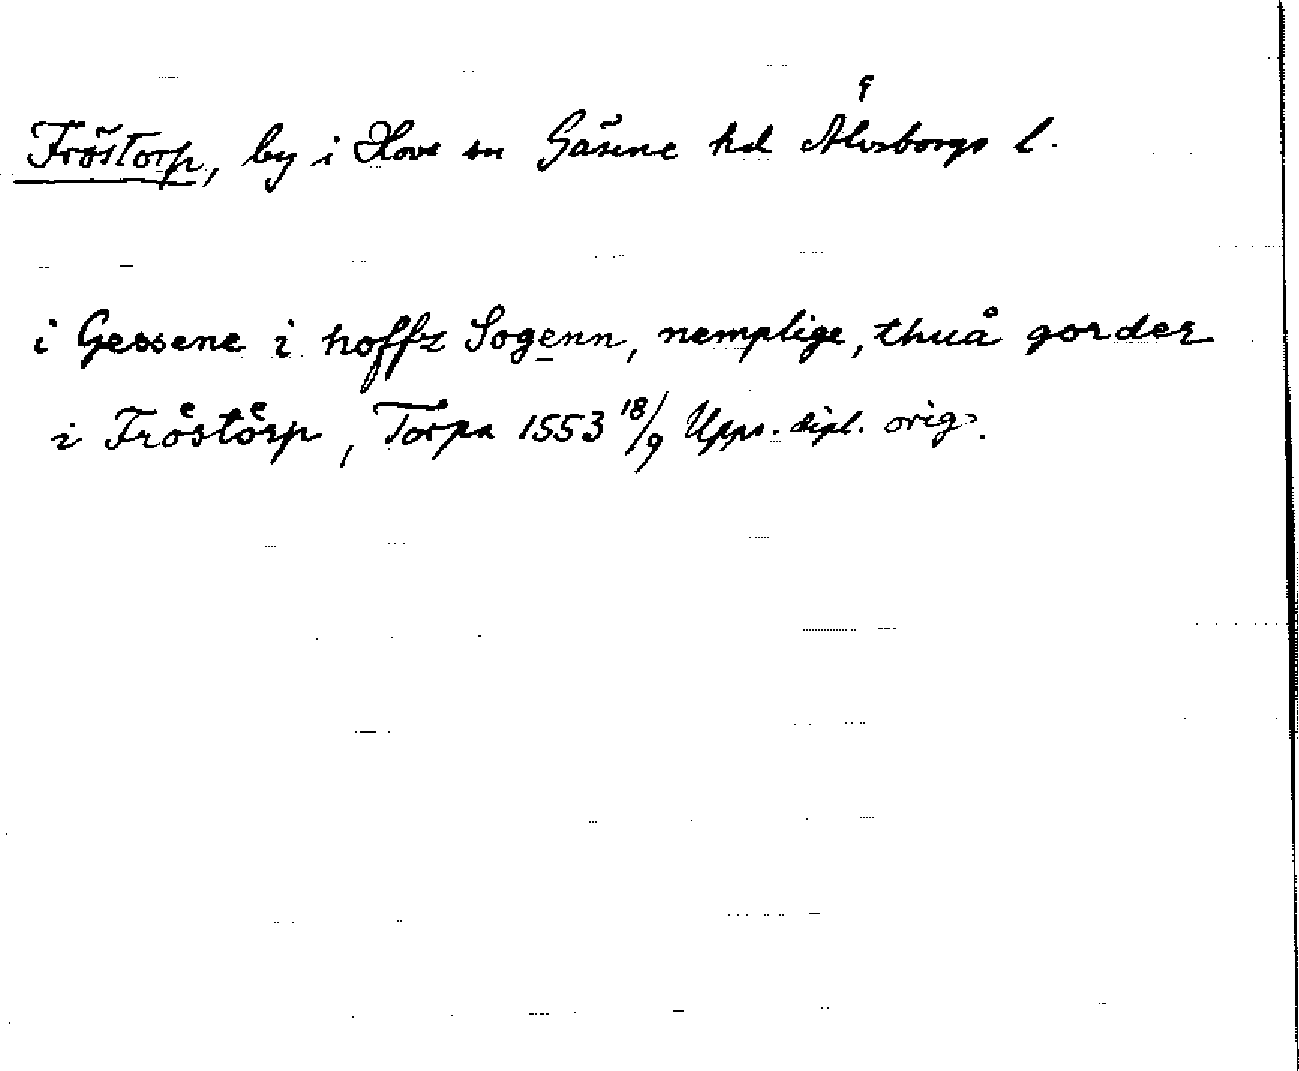 Fröstorp, by i Hove sn Gäsene hd Älvsborgs l.
i Gessene i hoffz Sogenn, nemplige, thuå gorder
i Fröstörp, Torpa 1553 18/9 Upps. dipl. orig.